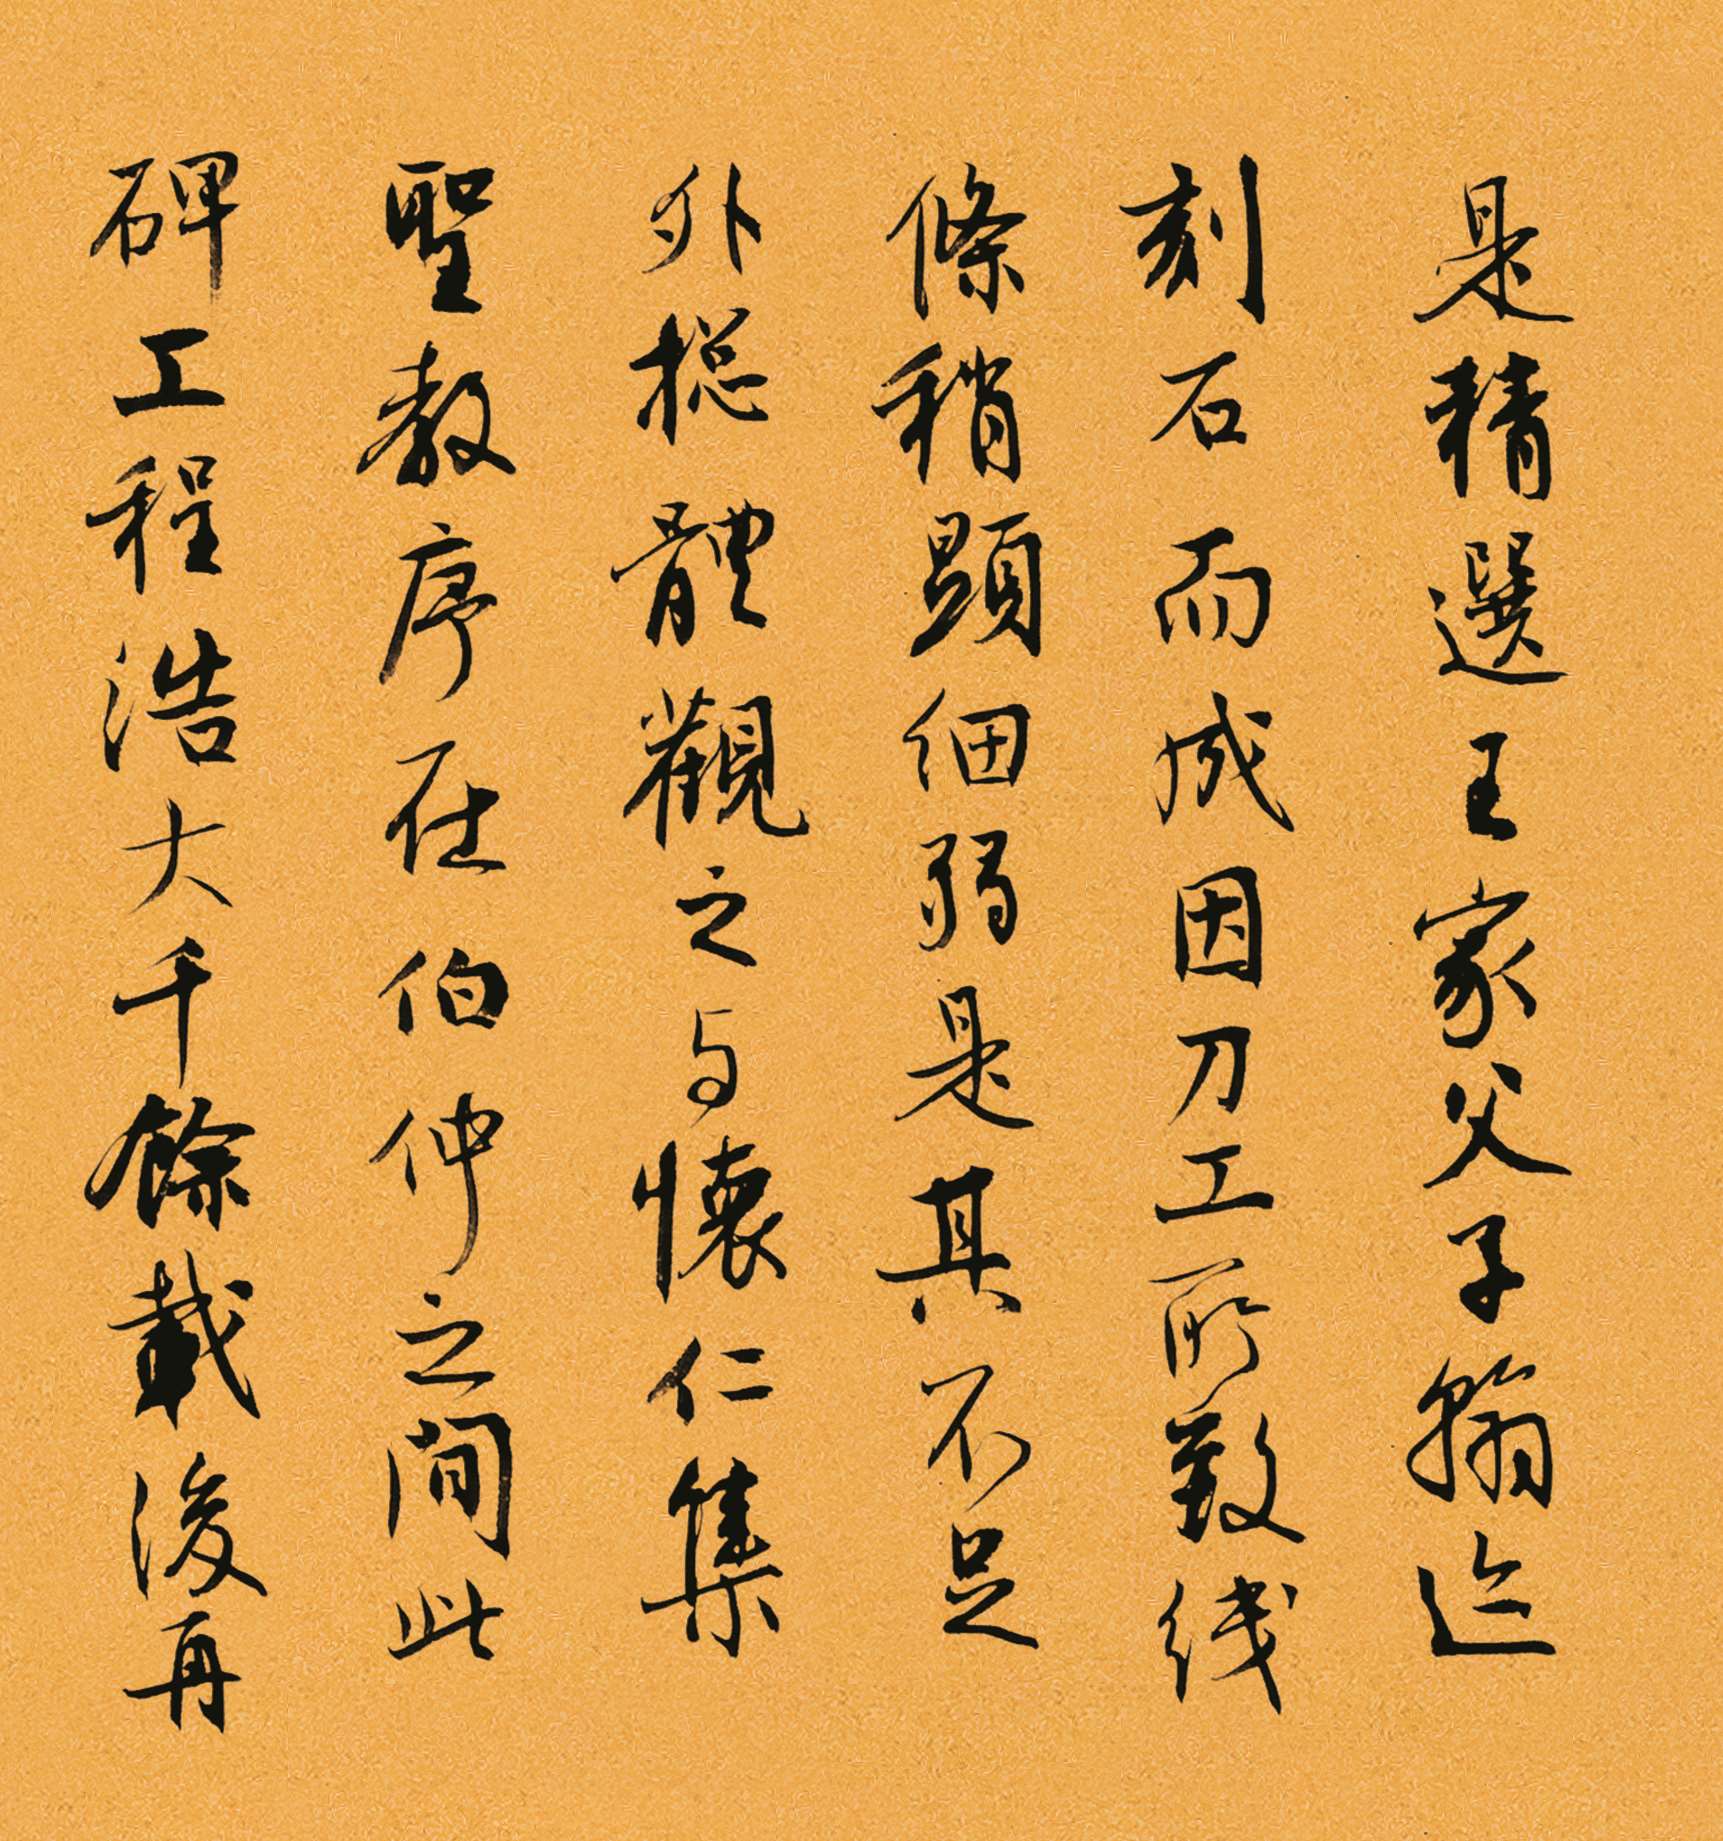 是精選王家父子翰迹
刻石而成因刀工所致线
條稍顯細弱是其不足
外揔體觀之与懷仁集
聖教序在伯仲之間此
碑工程浩大千餘載後再